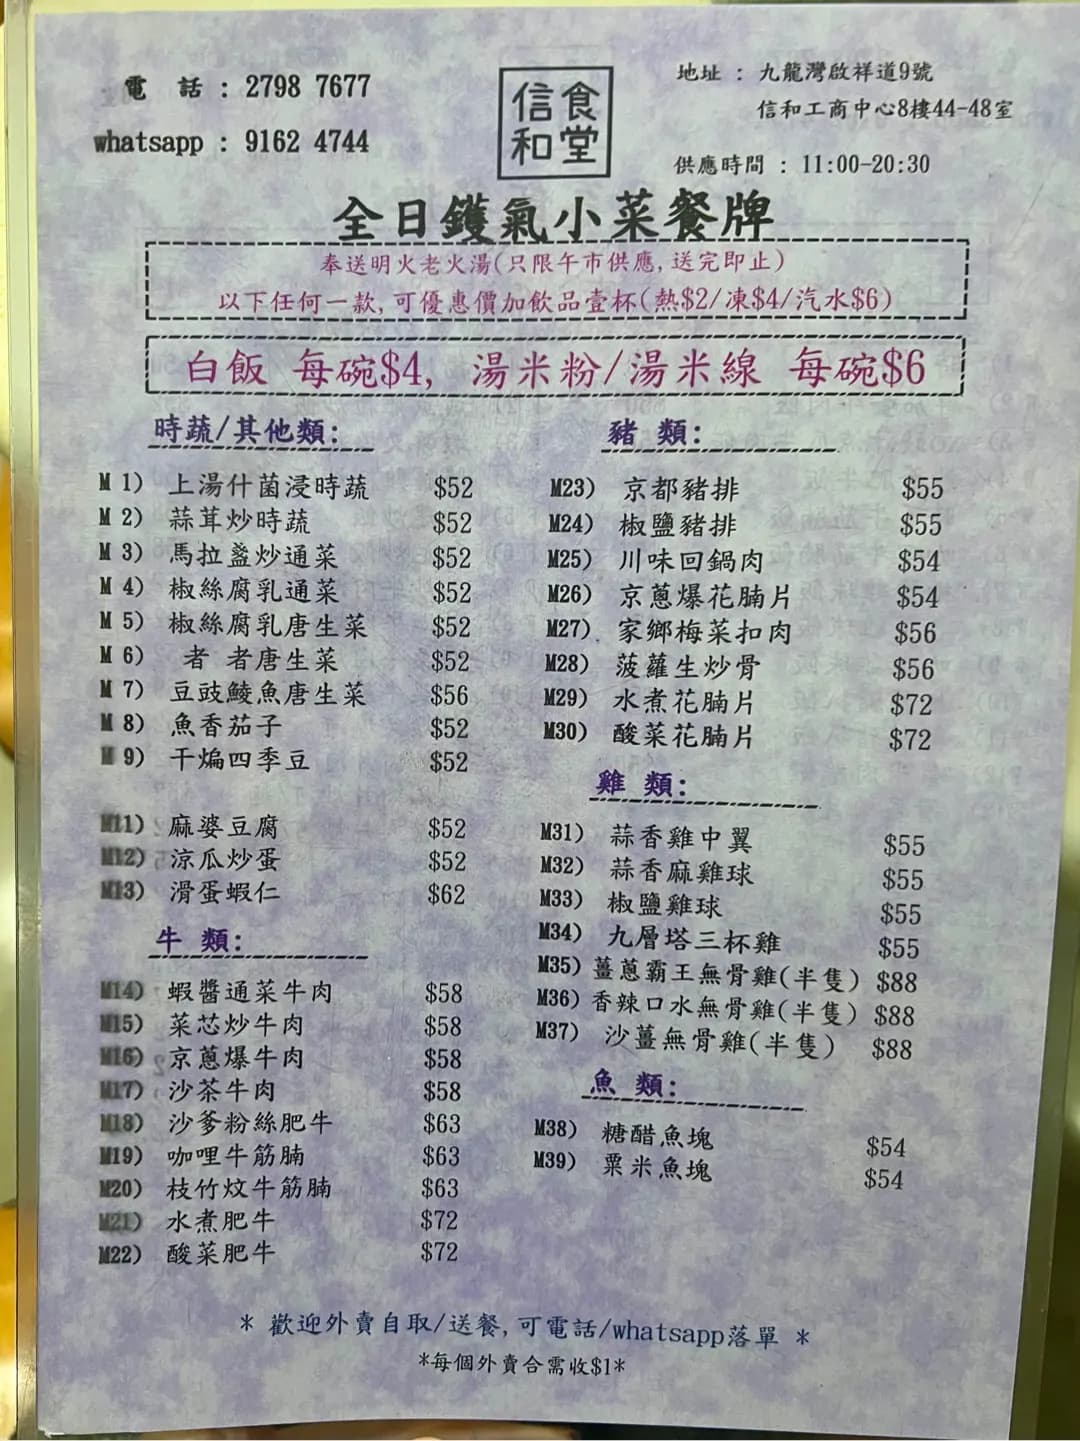 電 話 : 2798 7677
whatsapp : 9162 4744
信食
和堂
地址 : 九龍灣啟祥道9號
信和工商中心8樓44-48室
供應時間 : 11:00-20:30
全日鑊氣小菜餐牌
奉送明火老火湯(只限午市供應,送完即止)
以下任何一款,可優惠價加飲品壹杯(熱$2/凍$4/汽水$6)
白飯 每碗$4, 湯米粉/湯米線 每碗$6
時蔬/其他類:
M 1) 上湯什菌浸時蔬 $52
M 2) 蒜茸炒時蔬 $52
M 3) 馬拉盞炒通菜 $52
M 4) 椒絲腐乳通菜 $52
M 5) 椒絲腐乳唐生菜 $52
M 6) 者 者唐生菜 $52
M 7) 豆豉鯪魚唐生菜 $56
M 8) 魚香茄子 $52
M 9) 干煸四季豆 $52
M11) 麻婆豆腐 $52
M12) 涼瓜炒蛋 $52
M13) 滑蛋蝦仁 $62
牛 類:
M14) 蝦醬通菜牛肉 $58
M15) 菜芯炒牛肉 $58
M16) 京蔥爆牛肉 $58
M17) 沙茶牛肉 $58
M18) 沙爹粉絲肥牛 $63
M19) 咖哩牛筋腩 $63
M20) 枝竹炆牛筋腩 $63
M21) 水煮肥牛 $72
M22) 酸菜肥牛 $72
豬 類:
M23) 京都豬排 $55
M24) 椒鹽豬排 $55
M25) 川味回鍋肉 $54
M26) 京蔥爆花腩片 $54
M27) 家鄉梅菜扣肉 $56
M28) 菠蘿生炒骨 $56
M29) 水煮花腩片 $72
M30) 酸菜花腩片 $72
雞 類:
M31) 蒜香雞中翼 $55
M32) 蒜香麻雞球 $55
M33) 椒鹽雞球 $55
M34) 九層塔三杯雞 $55
M35) 薑蔥霸王無骨雞(半隻) $88
M36) 香辣口水無骨雞(半隻) $88
M37) 沙薑無骨雞(半隻) $88
魚 類:
M38) 糖醋魚塊 $54
M39) 粟米魚塊 $54
* 歡迎外賣自取/送餐,可電話/whatsapp落單 *
*每個外賣合需收$1*